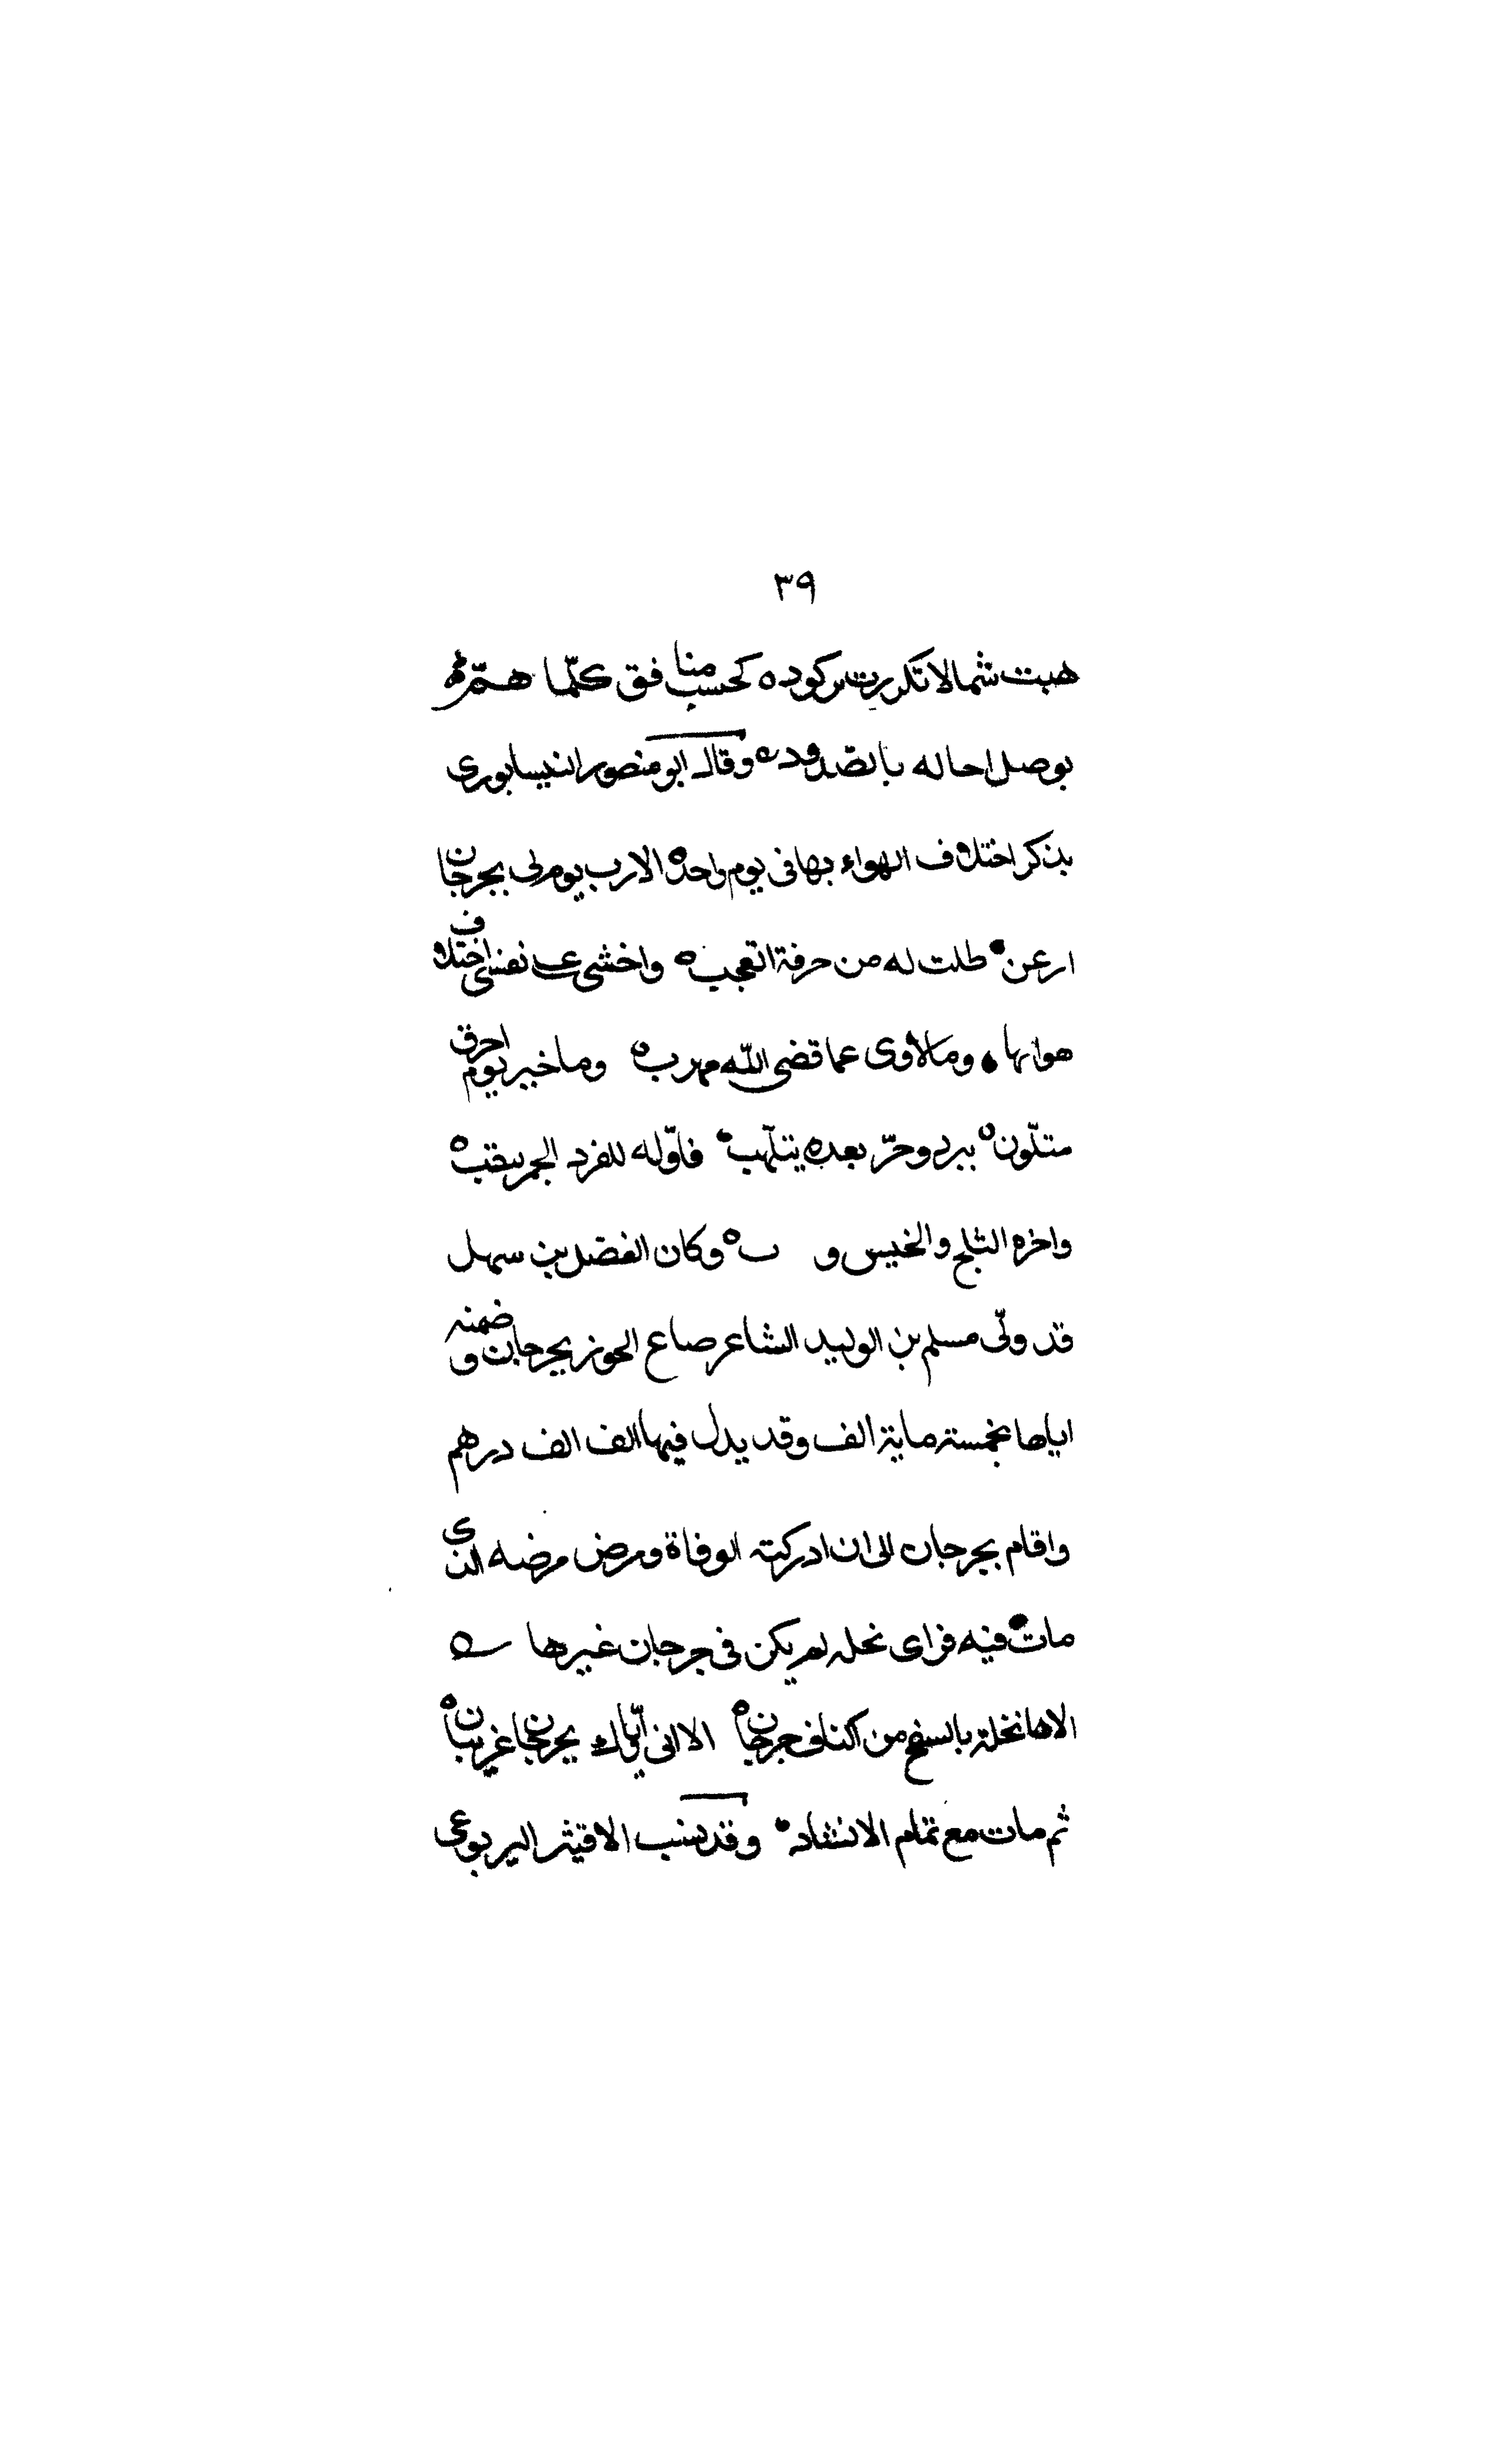 ٣٩
هبت شمالا تكدرت بركوده كحسب منافق كلّما همّ
بوصل احاله بالصدوده وقال ابو منصور النيسابورى
يذكر اختلاف الهواء بها فى يوم واحده الا رب يوم لى بجرجان
ارعن ه طلت له من حرفة اتعجب ه واخشى على نفسى اختلاف
هوائها ه وما لاوى عما قضى الله مهرب ه وما خير يوم احرق
متلّون ه ببرد وحرّ بعده يتلهب ه فاوّله للفرد الجمر ينقب ه
واخره الثلج والخيس و ب ه وكان الفضل بن سهل
قد ولّى مسلم بن الوليد الشاعر صاع الحوز بجرجان و ضمنه
اياها بخمسة ماية الف وقد يدل فيها الف الف درهم
واقام بجرجان الى ان ادركته الوفاة ومرض مرضه الذى
مات فيه فراى نخله لم يكن فى جرجان غيرها
الاها نخلة بالسفح من اكناف جرجان ه الا انى واياك بجرجان غريبان ه
ثم مات مع تمام الانشاد ه وقد نسب الاقيشر اليربوعى